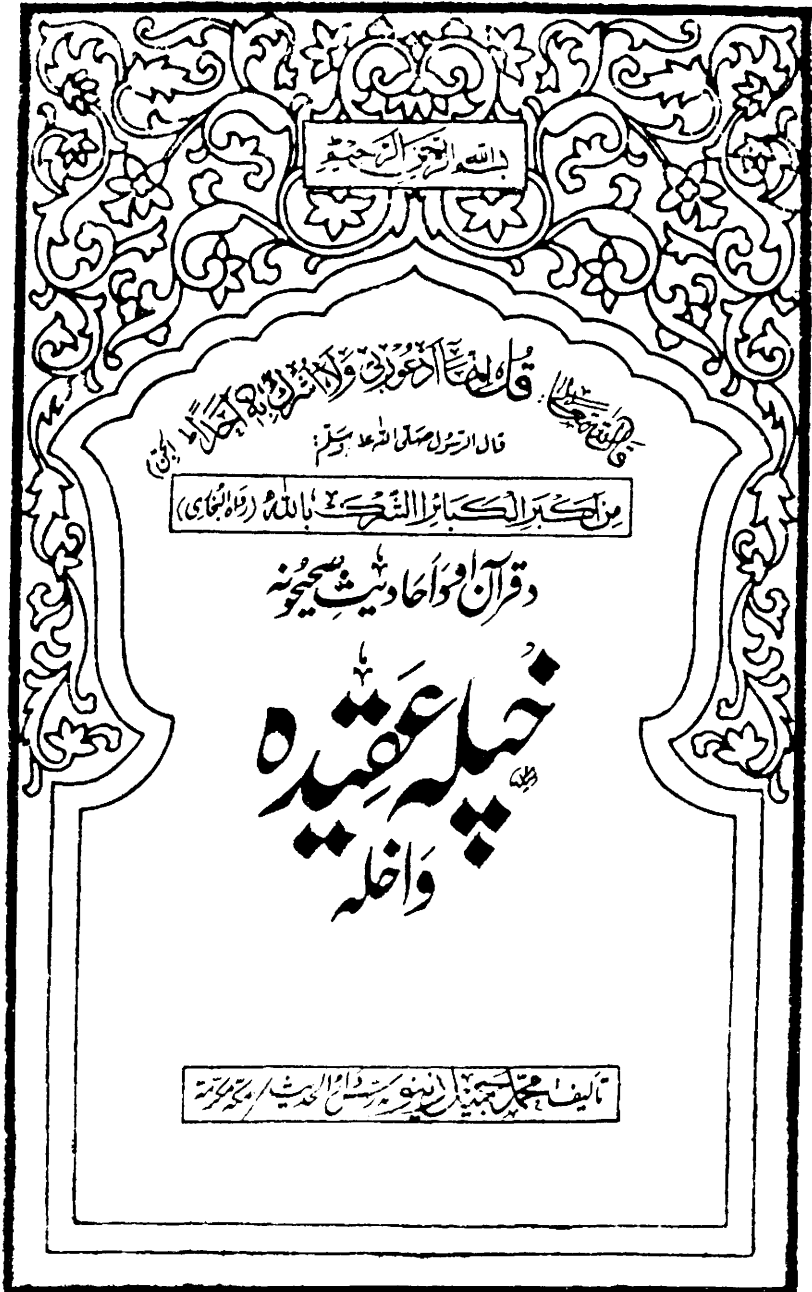 بسم الله الرحمن الرحيم
قال الله تعالى: قُلْ إِنَّمَا أَدْعُو رَبِّي وَلَا أُشْرِكُ بِهِ أَحَدًا ط (الجن)
قال الرسول صلى الله علیہ وسلم:
مِنْ أَكْبَرِ الْكَبَائِرِ الشِّرْكُ بِاللهِ (رواه البخاري)
د قرآن او اَحَادیثِ صحیحونه
خپله عَقِیده
وَاخله
تأليف محمد بن جميل زينو مدرس دار الحديث / مكة مكرمة